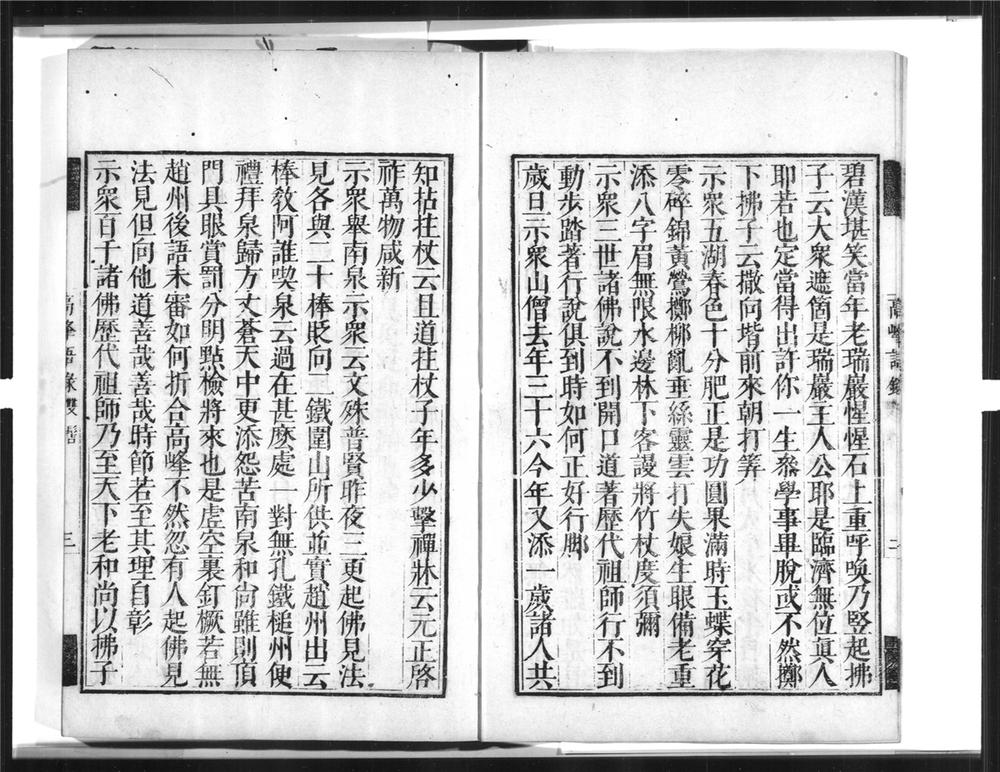 碧漢堪笑當年老瑞巖惺惺石上重呼喚乃豎起拂
子云大衆遮箇是瑞巖主人公耶是臨濟無位眞人
耶若也定當得出許你一生叅學事畢脫或不然擲
下拂子云撒向堦前來朝打筭
示衆五湖春色十分肥正是功圓果滿時玉蝶穿花
零碎錦黃鶯擲柳亂垂絲靈雲打失娘生眼備老重
添八字眉無限水邊林下客謾將竹杖度須彌
示衆三世諸佛說不到開口道著歷代祖師行不到
動步踏著行說俱到時如何正好行脚
歲旦示衆山僧去年三十六今年又添一歲諸人共
高峰語錄
二
知拈拄杖云且道拄杖子年多少擊禪牀云元正啓
祚萬物咸新
示衆舉南泉示衆云文殊普賢昨夜三更起佛見法
見各與二十棒貶向二鐵圍山所供並實趙州出云
棒敎阿誰喫泉云過在甚麼處一對無孔鐵槌州便
禮拜泉歸方丈蒼天中更添怨苦南泉和尙雖則頂
門具眼賞罰分明點檢將來也是虛空裏釘橛若無
趙州後語未審如何折合高峰不然忽有人起佛見
法見但向他道善哉善哉時節若至其理自彰
示衆百千諸佛歷代祖師乃至天下老和尙以拂子
高峰語錄雙髻
三